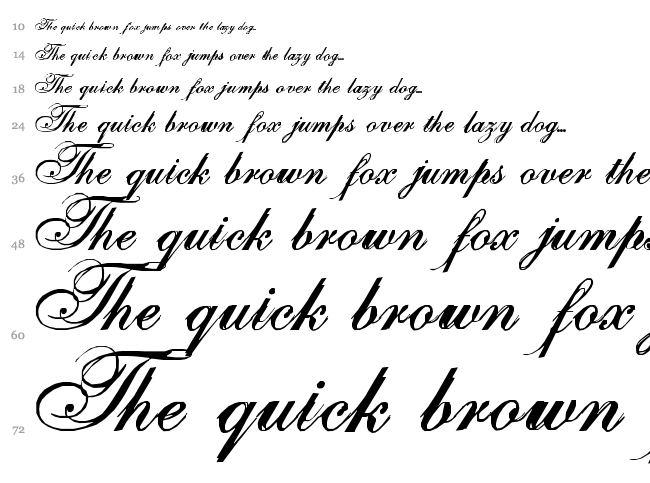 10 The quick brown fox jumps over the lazy dog...
14 The quick brown fox jumps over the lazy dog...
18 The quick brown fox jumps over the lazy dog...
24 The quick brown fox jumps over the lazy dog...
36 The quick brown fox jumps over the
48 The quick brown fox jumps
60 The quick brown fox
72 The quick brown